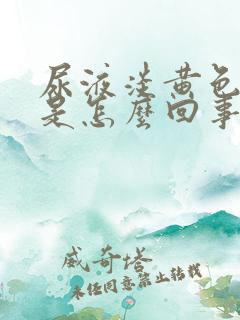 尿液淡黄色
是怎麼回事
威奇塔
未经同意禁止转载